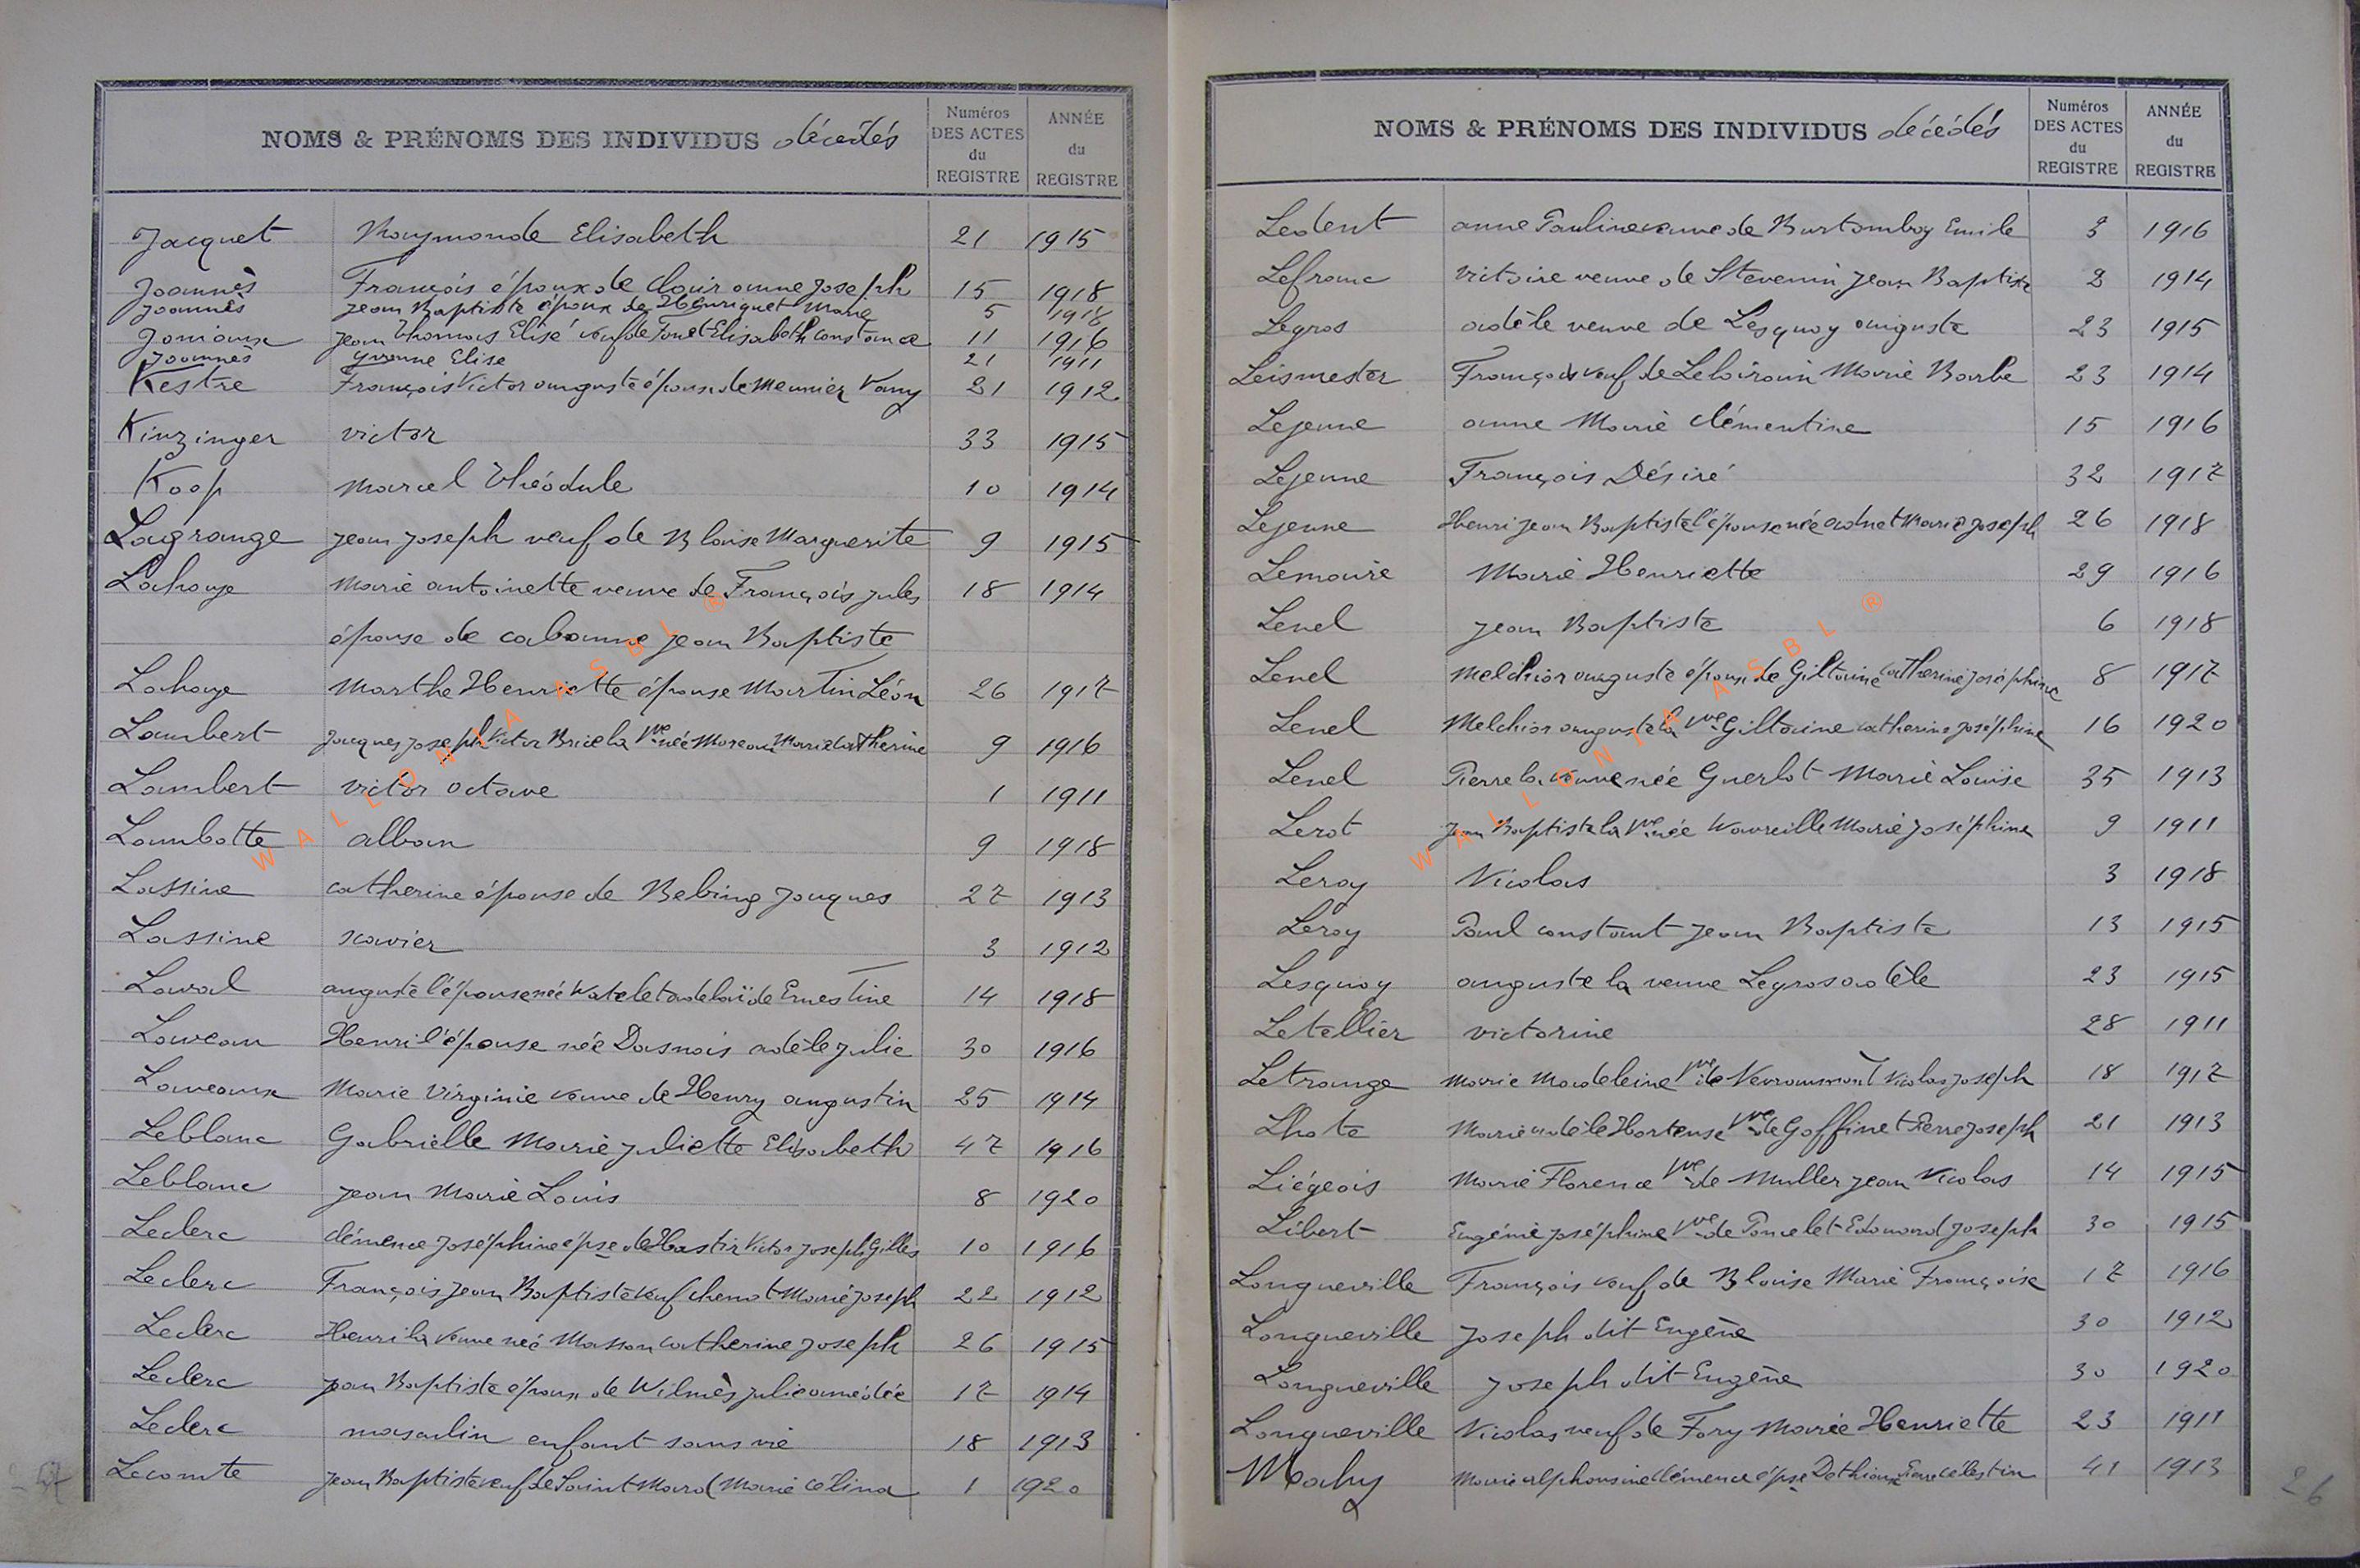 NOMS & PRÉNOMS DES INDIVIDUS décédés Numéros DES ACTES du REGISTRE ANNÉE du REGISTRE
Jacquet Raymonde Elisabeth 21 1915
Joannès François époux de Clair anne Joseph 15 1918
Joannès Jean Baptiste époux de Henriquet Marie 5 1918
Joniaux Jean Thomas Elisé veuf de Fonet Elisabeth Constance 11 1916
Joannès Yvonne Elise 21 1911
Kestre François Victor auguste époux de Meunier Vany 21 1912
Kinzinger victor 33 1915
Koop Marcel Théodule 10 1914
Lagrange Jean Joseph veuf de Blaise Marguerite 9 1915
Lahaye Marie antoinette veuve de François Jules 18 1914
épouse de cabanne Jean Baptiste
Lahaye Marthe Henriette épouse Martin Léon 26 1917
Lambert Jacques Joseph Victor Brice la Vve née Moreau Marie Catherine 9 1916
Lambert victor octave 1 1911
Lambotte alban 9 1918
Lassine catherine épouse de Bebing Jacques 27 1913
Lassine xavier 3 1912
Laval auguste l'épouse née Watelet adelaïde Ernestine 14 1918
Laveau Henri l'épouse née Dasnois adèle Julie 30 1916
Laveaux Marie Virginie veuve de Henry augustin 25 1914
Leblanc Gabrielle Marie Juliette Elisabeth 47 1916
Leblanc Jean Marie Louis 8 1920
Leclerc clémence Joséphine épse de Hastir Victor Joseph Gilles 10 1916
Leclerc François Jean Baptiste veuf chenot Marie Joseph 22 1912
Leclerc Henri la veuve née Masson catherine Joseph 26 1915
Leclerc Jean Baptiste époux de Wilmès Julie amédée 17 1914
Leclerc masculin enfant sans vie 18 1913
Lecomte Jean Baptiste veuf de Saint Mard Marie Célina 1 1920
NOMS & PRÉNOMS DES INDIVIDUS décédés Numéros DES ACTES du REGISTRE ANNÉE du REGISTRE
Ledent anne Pauline veuve de Burtomboy Emile 3 1916
Lefranc victoire veuve de Stevenin Jean Baptiste 2 1914
Legros adèle veuve de Lesquoy auguste 23 1915
Leismester François veuf de Leloirain Marie Barbe 23 1914
Lejeune anne Marie clémentine 15 1916
Lejeune François Désiré 32 1917
Lejeune Henri Jean Baptiste l'épouse née adnet Marie Joseph 26 1918
Lemaire Marie Henriette 29 1916
Lenel Jean Baptiste 6 1918
Lenel Melchior auguste époux de Giltaine Catherine Joséphine 8 1917
Lenel Melchior auguste la Vve Giltaine catherine Joséphine 16 1920
Lenel Pierre la veuve née Guerlot Marie Louise 35 1913
Lerot Jean Baptiste la Vve née Wavreille Marie Joséphine 9 1911
Leroy Nicolas 3 1918
Leroy Paul constant Jean Baptiste 13 1915
Lesquoy auguste la veuve Legros adèle 23 1915
Letellier victorine 28 1911
Letrange Marie Madeleine Vve de Nevraumont Nicolas Joseph 18 1917
Lhote Marie adèle Hortense Vve de Goffinet Pierre Joseph 21 1913
Liégeois Marie Florence Vve de Muller Jean Nicolas 14 1915
Libert Eugénie Joséphine Vve de Poncelet Edouard Joseph 30 1915
Longueville François veuf de Blaise Marie Françoise 17 1916
Longueville Joseph dit Eugène 30 1912
Longueville Joseph dit Eugène 30 1920
Longueville Nicolas veuf de Fory Marie Henriette 23 1911
Mahy Marie alphonsine clémence épse Dethioux Pierre célestin 41 1913
26
WALLONIA ASBL ®
WALLONIA ASBL ®